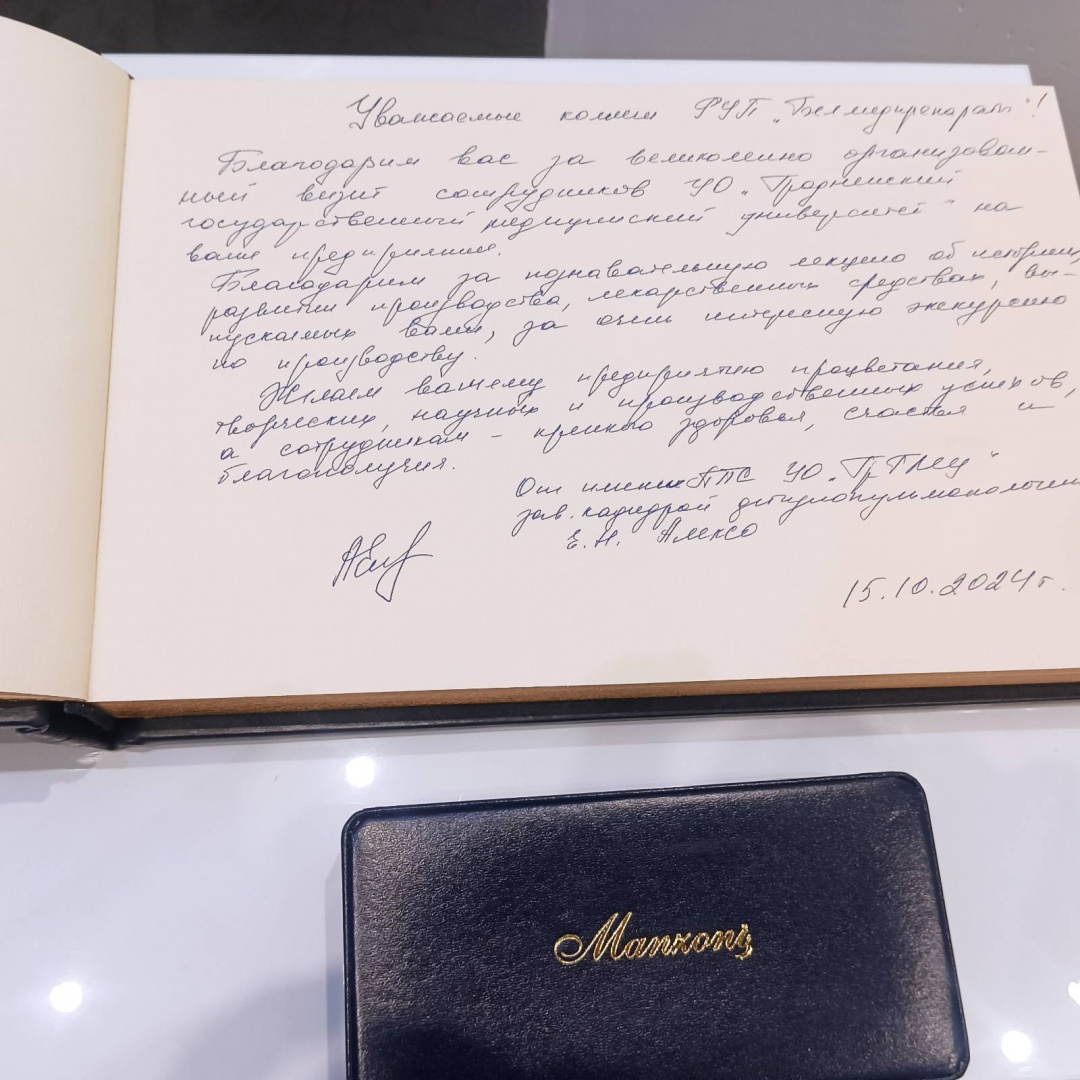 Уважаемые коллеги РУП „Белмедпрепараты"!
Благодарим вас за великолепно организован-
ный визит сотрудников УО „Гродненский
государственный медицинский университет" на
ваше предприятие.
Благодарим за познавательную лекцию об истории,
развитии производства, лекарственных средствах, вы-
пускаемых вами, за очень интересную экскурсию
по производству.
Желаем вашему предприятию процветания,
творческих, научных и производственных успехов,
а сотрудникам – крепкого здоровья, счастья и
благополучия.
От имени ППС УО „ГрГМУ"
зав. кафедрой фтизиопульмонологии
Е.Н. Алексо
15.10.2024 г.
Manzoni